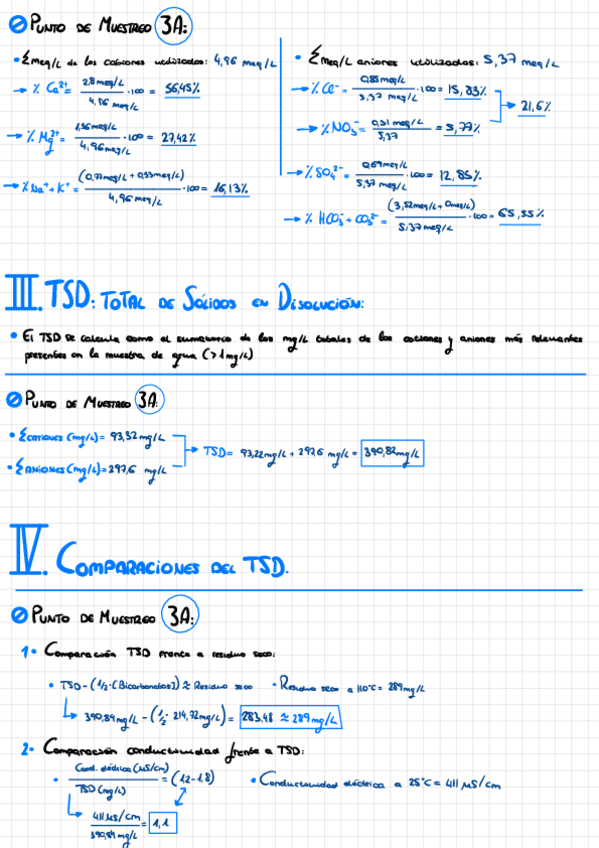 PUNTO DE MUESTREO 3A:
• Σmeq/L de los cationes utilizados: 4,96 meq/L
→ % Ca²⁺ = 2,8meq/L / 4,96 meq/L · 100 = 56,45%
→ % Mg²⁺ = 1,36meq/L / 4,96meq/L · 100 = 27,42%
→ % Na⁺ + K⁺ = (0,77meq/L + 0,03meq/L) / 4,96meq/L · 100 = 16,13%
• Σmeq/L aniones utilizados: 5,37 meq/L
→ % Cl⁻ = 0,85meq/L / 5,37 meq/L · 100 = 15,83%
→ % NO₃⁻ = 0,31 meq/L / 5,37 = 5,77%
→ 21,6%
→ % SO₄²⁻ = 0,69meq/L / 5,37 meq/L · 100 = 12,85%
→ % HCO₃⁻ + CO₃²⁻ = (3,52meq/L + 0meq/L) / 5,37 meq/L · 100 = 65,55%
III. TSD: TOTAL DE SÓLIDOS EN DISOLUCIÓN:
• El TSD se calcula como el sumatorio de los mg/L totales de los cationes y aniones más relevantes
presentes en la muestra de agua (>1mg/L)
PUNTO DE MUESTREO 3A:
• ΣCATIONES (mg/L) = 93,32mg/L
• ΣANIONES (mg/L) = 297,6 mg/L
→ TSD = 93,22mg/L + 297,6 mg/L = 390,82mg/L
IV. COMPARACIONES DEL TSD.
PUNTO DE MUESTREO 3A:
1• Comparación TSD frente a residuo seco:
• TSD - (1/2 · [Bicarbonatos]) ≈ Residuo seco • Residuo seco a 110°C = 289mg/L
↳ 390,84mg/L - (1/2 · 214,72mg/L) = 283,48 ≈ 289mg/L
2• Comparación conductividad frente a TSD:
• Cond. eléctrica (µS/cm) / TSD (mg/L) = (1,2-1,8) • Conductividad eléctrica a 25°C = 411 µS/cm
↳ 411 µS/cm / 390,84 mg/L = 1,1